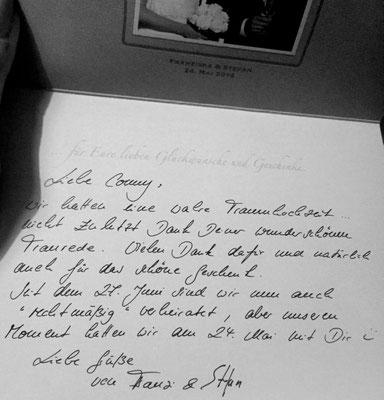 FRANZISKA & STEFAN
24. MAI 2014
... für Eure lieben Glückwünsche und Geschenke
Liebe Conny,
wir hatten eine wahre Traumhochzeit ...
nicht zuletzt Dank Deiner wunderschönen
Traurede. Vielen Dank dafür und natürlich
auch für das schöne Geschenk.
Seit dem 27. Juni sind wir nun auch
"rechtmäßig" verheiratet, aber unseren
Moment hatten wir am 24. Mai mit Dir
Liebe Grüße
von Franzi & Stefan